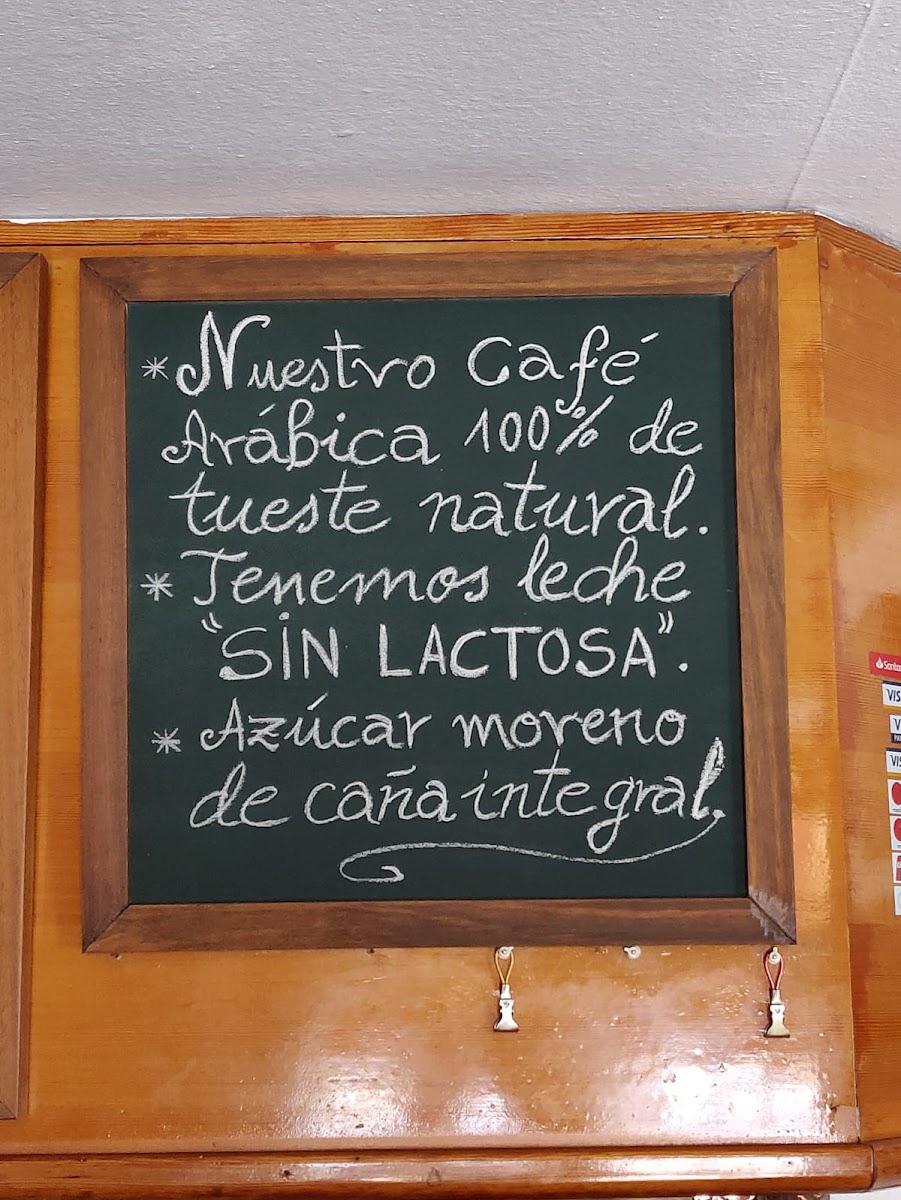 * Nuestro Café
Arábica 100% de
tueste natural.
* Tenemos leche
"SIN LACTOSA".
* Azúcar moreno
de caña integral.